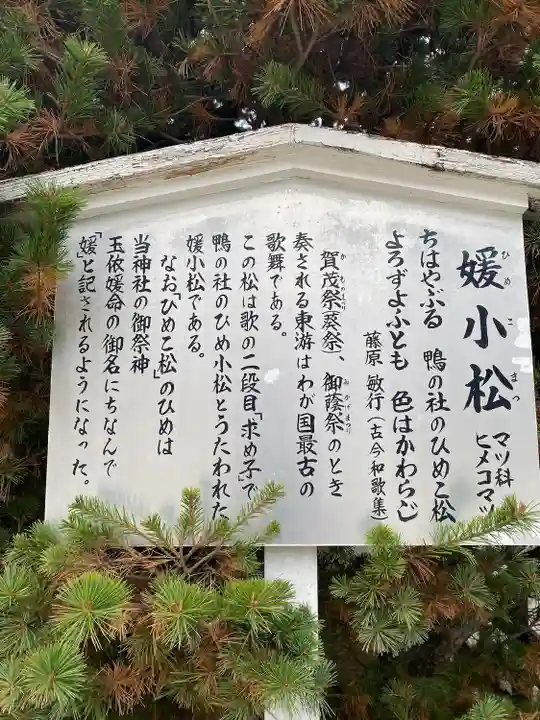 媛小松
ひめこまつ
マツ科
ヒメコマツ
ちはやぶる 鴨の社のひめこ松
よろずよふとも 色はかわらじ
藤原 敏行(古今和歌集)
賀茂祭(葵祭)、御蔭祭のとき
かものまつり
みかげまつり
奏される東游はわが国最古の
歌舞である。
この松は歌の二段目「求め子」で
鴨の社のひめ小松とうたわれた
媛小松である。
なお「ひめこ松」のひめは
当神社の御祭神
玉依媛命の御名にちなんで
「媛」と記されるようになった。